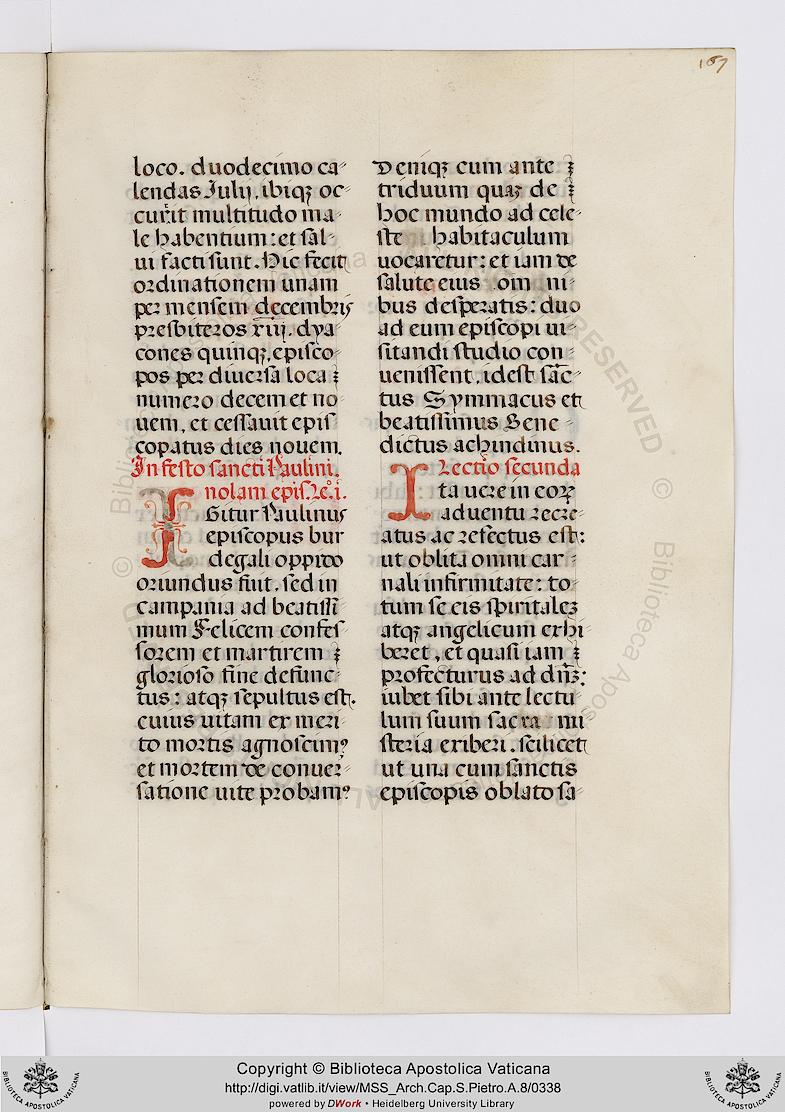 167
loco. duodecimo ca-
lendas Julij. ibiqꝫ oc-
currit multitudo ma-
le habentium: et sal-
ui facti sunt. Hic fecit
ordinationem unam
per mensem decembris
presbiteros xiij. dya-
cones quinqꝫ, episco-
pos per diuersa loca ⁊
numero decem et no-
uem, et cessauit epis
copatus dies nouem.
In festo sancti Paulini.
nolani epis. le. i.
IGitur Paulinus
episcopus bur
degali oppido
oriundus fuit. sed in
campania ad beatissi-
mum Felicem confes-
sorem et martirem ⁊
glorioso fine defunc-
tus: atqꝫ sepultus est.
cuius uitam ex meri-
to mortis agnoscimꝰ
et mortem de conuer-
satione uite probamꝰ
Deniqꝫ cum ante ⁊
triduum quaꝫ de ⁊
hoc mundo ad cele-
ste habitaculum
uocaretur: et iam de
salute eius om ni-
bus desperatis: duo
ad eum episcopi ui-
sitandi studio con-
uenissent. idest sāc-
tus Symmacus et
beatissimus Bene-
dictus achindinus.
Lectio secunda
Ita uere in eoꝝ
aduentu recre-
atus ac refectus est:
ut oblita omni car-
nali infirmitate: to-
tum se eis spiritaleꝫ
atqꝫ angelicum exhi-
beret, et quasi iam ⁊
profecturus ad dn̄ꝫ:
iubet sibi ante lectu-
lum suum sacra mi
steria exiberi. scilicet
ut una cum sanctis
episcopis oblato sa-
Copyright © Biblioteca Apostolica Vaticana
http://digi.vatlib.it/view/MSS_Arch.Cap.S.Pietro.A.8/0338
powered by DWork • Heidelberg University Library